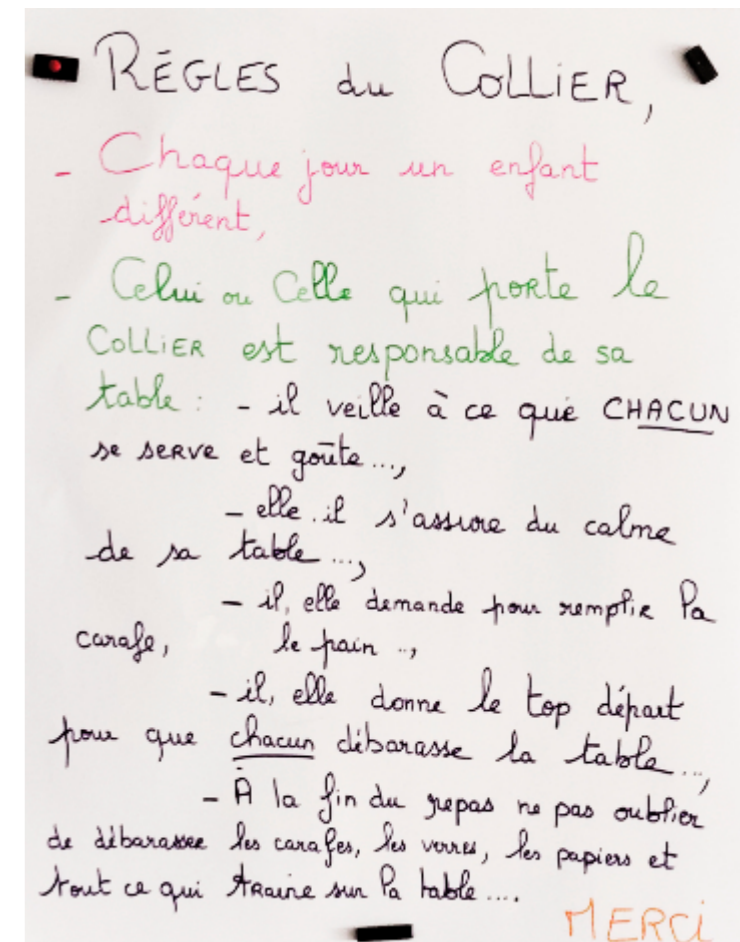 RÉGLES du COLLIER,
- Chaque jour un enfant
différent,
- Celui ou Celle qui porte le
COLLIER est responsable de sa
table : - il veille à ce que CHACUN
se serve et goûte ...,
- elle. il s'assure du calme
de sa table ...,
- il, elle demande pour remplir la
carafe, le pain ..,
- il, elle donne le top départ
pour que chacun débarasse la table ...,
- À la fin du repas ne pas oublier
de débarasser les carafes, les verres, les papiers et
tout ce qui traine sur la table ....
MERCI